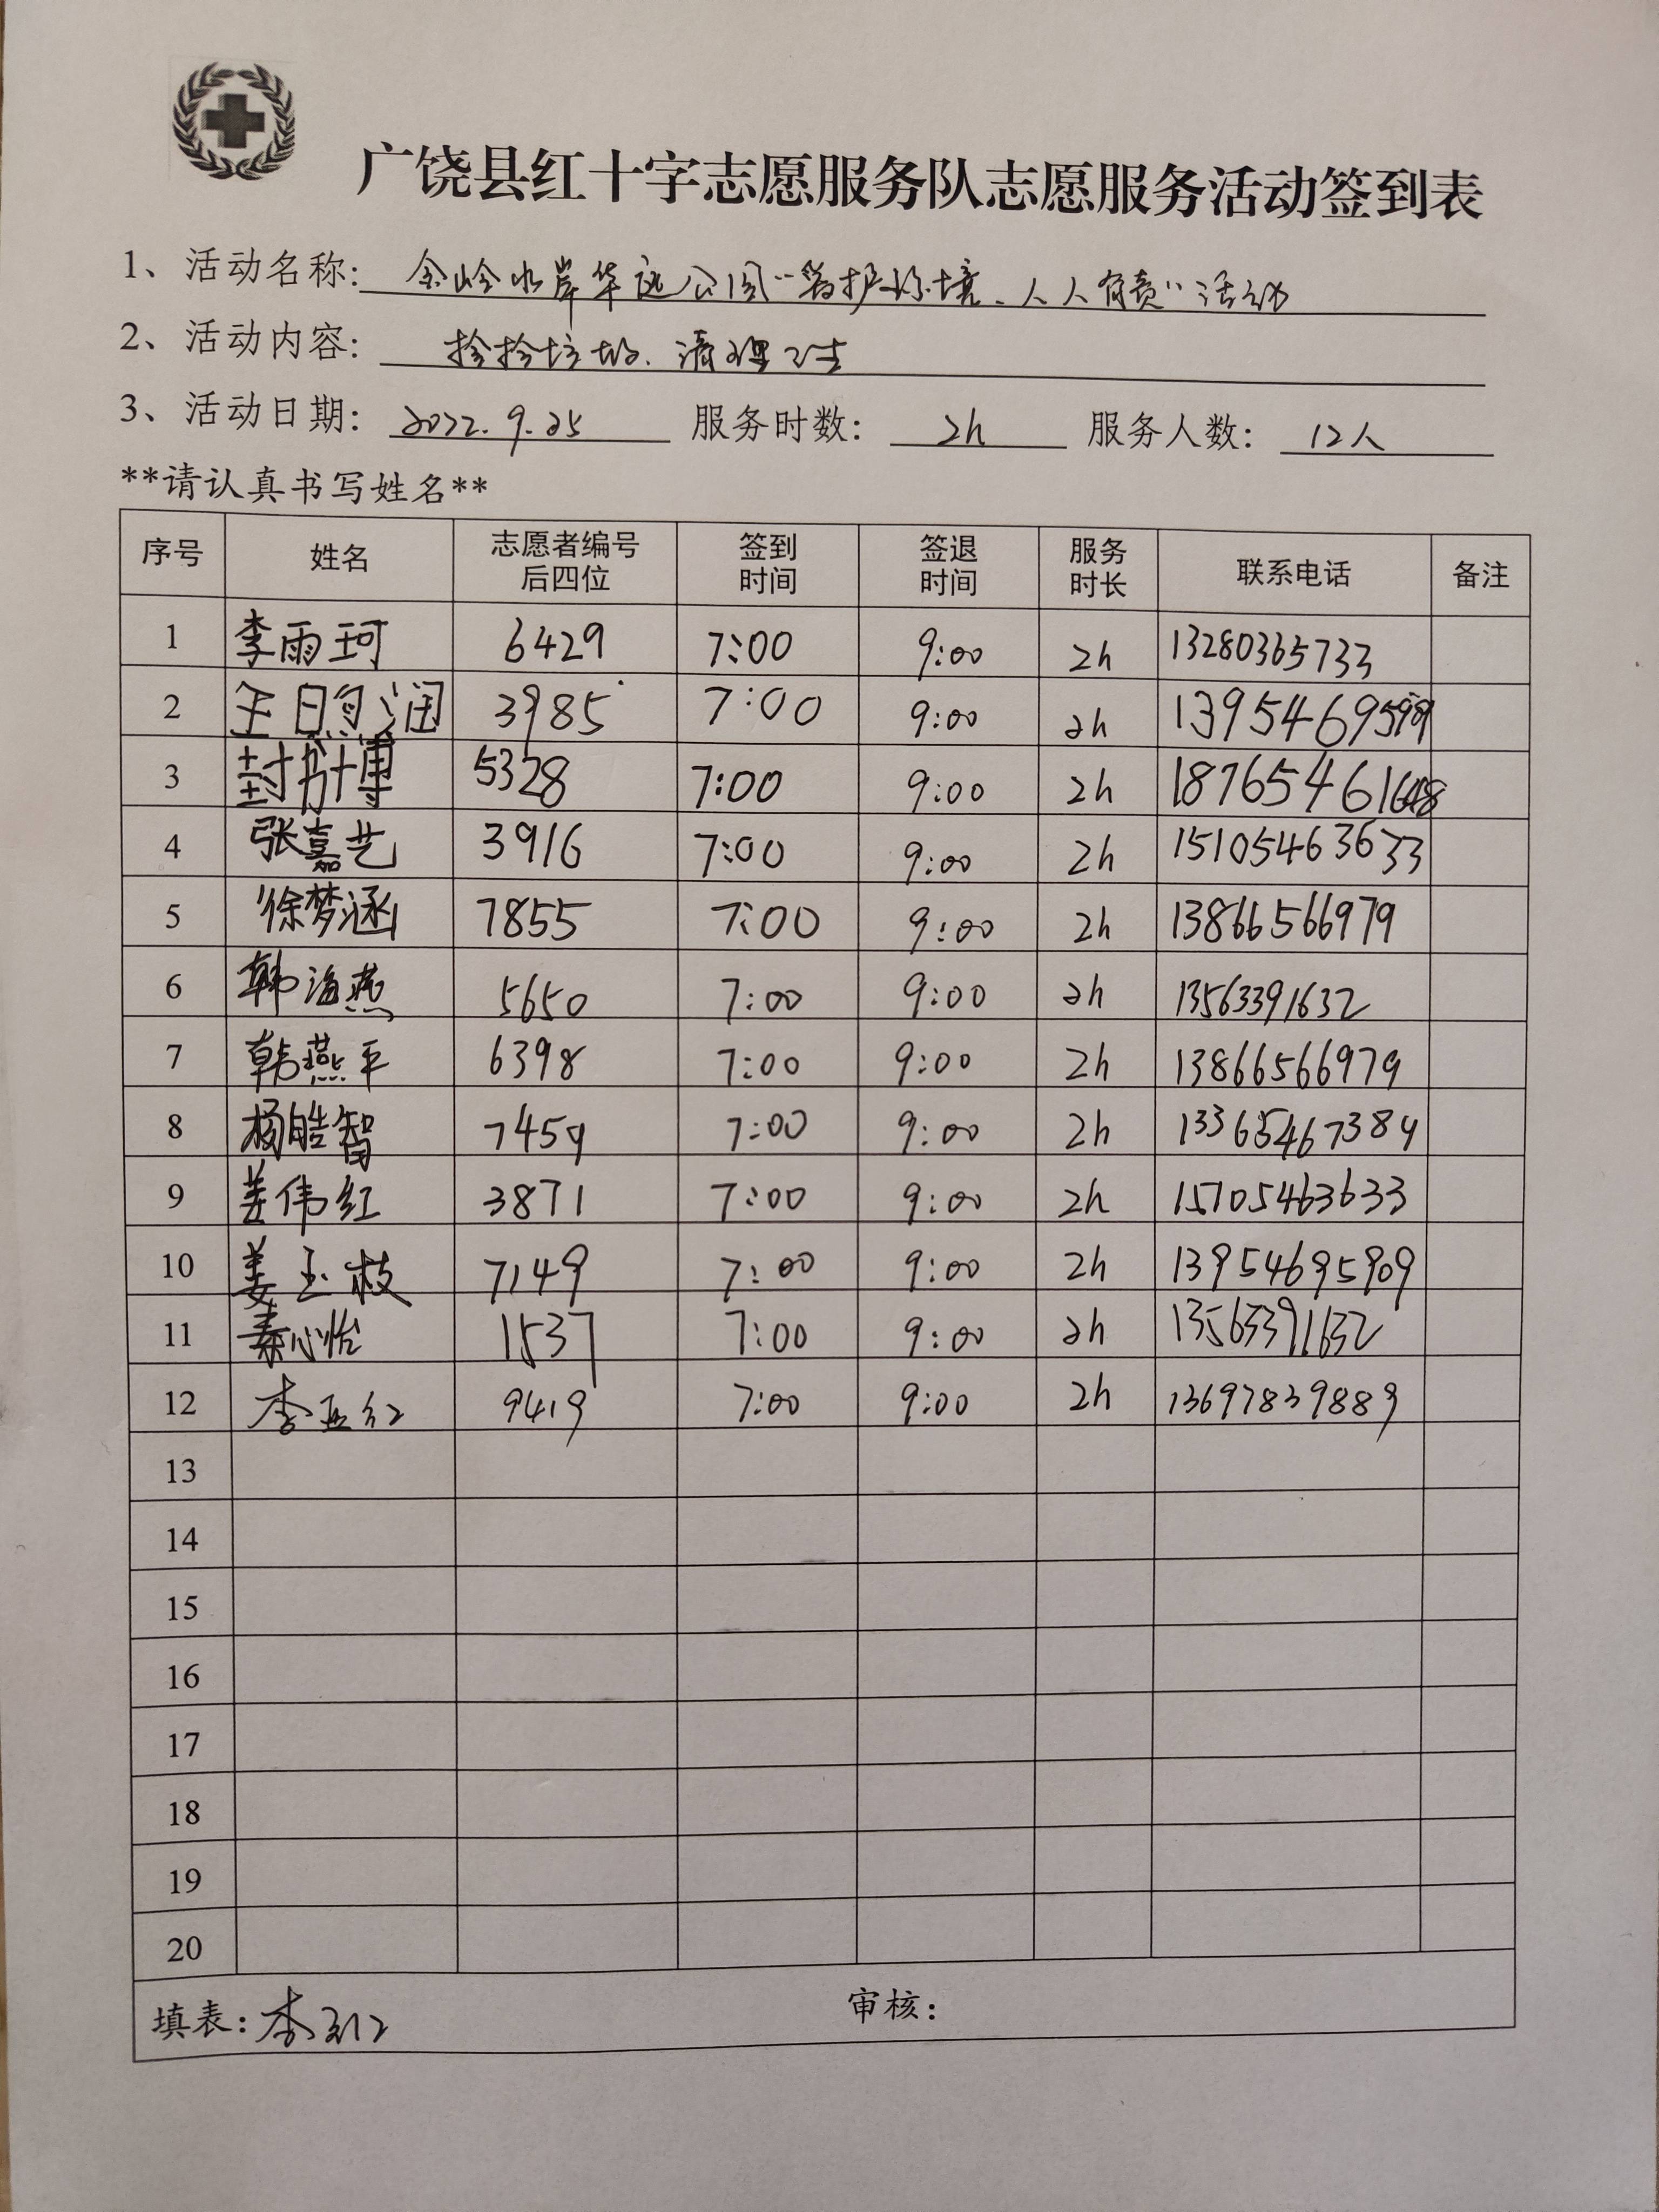 广饶县红十字志愿服务队志愿服务活动签到表
1、活动名称: 金岭水岸华远公园“爱护环境、人人有责”活动
2、活动内容: 捡拾垃圾、清理卫生
3、活动日期: 2022.9.25 服务时数: 2h 服务人数: 12人
**请认真书写姓名**
序号 姓名 志愿者编号后四位 签到时间 签退时间 服务时长 联系电话 备注
1 李雨珂 6429 7:00 9:00 2h 13280365733
2 王煦润 3985 7:00 9:00 2h
3 封书博 5328 7:00 9:00 2h
4 张嘉艺 3916 7:00 9:00 2h 15105463633
5 徐梦涵 7855 7:00 9:00 2h 13866566979
6 韩海燕 5650 7:00 9:00 2h 13563391632
7 韩燕平 6398 7:00 9:00 2h 13866566979
8 杨皓智 7459 7:00 9:00 2h 13365467384
9 姜伟红 3871 7:00 9:00 2h 15105463633
10 姜玉枝 7149 7:00 9:00 2h 13954695909
11 秦心怡 1537 7:00 9:00 2h 13563391632
12 李亚红 9419 7:00 9:00 2h 13697839889
13
14
15
16
17
18
19
20
填表: 李亚红 审核: